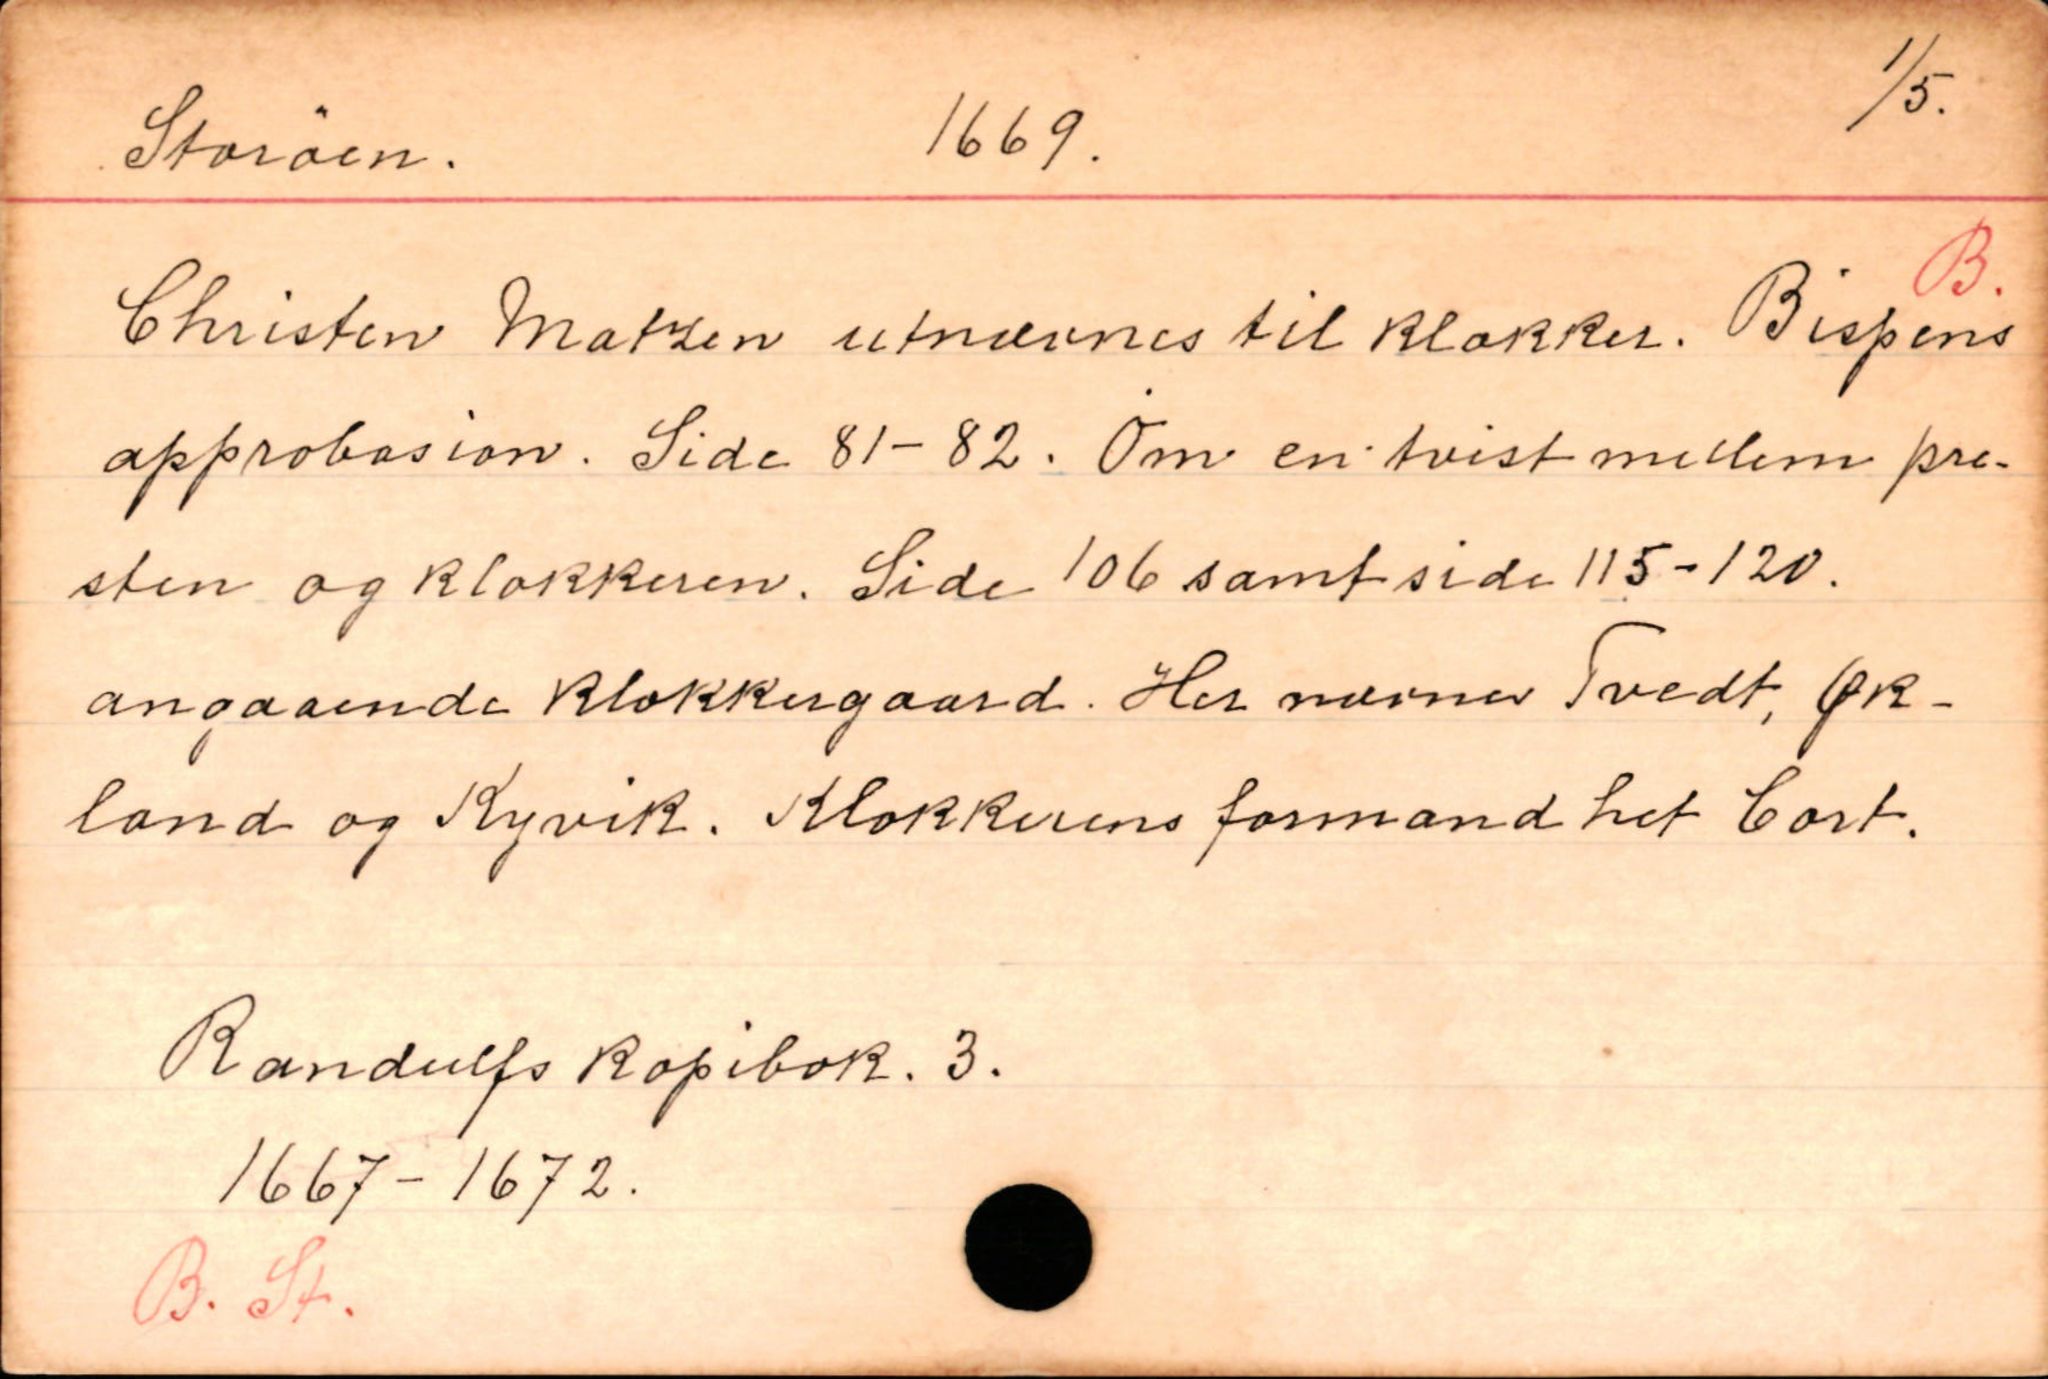 Storöen. 1669. 1/5.
B.
Christen Matzen utnævnes til klokker. Bispens
approbasion. Side 81-82. Om en tvist mellem pre-
sten og klokkeren. Side 106 samt side 115-120.
angaaende klokkergaard. Her nævnes Tvedt, Øk-
land og Kyvik. Klokkerens formand het Cort.
Randulfs kopibok. 3.
1667-1672.
B. St.